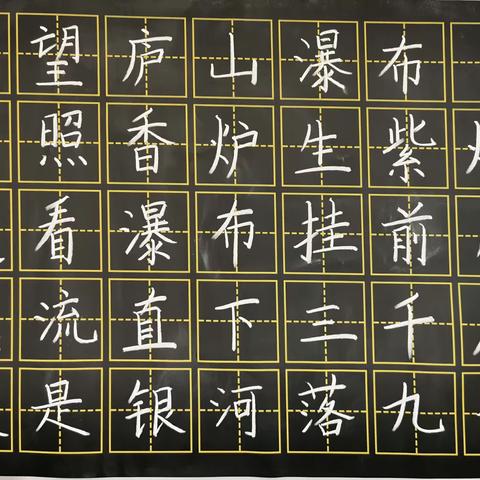 望庐山瀑布
照香炉生紫
看瀑布挂前
流直下三千
是银河落九